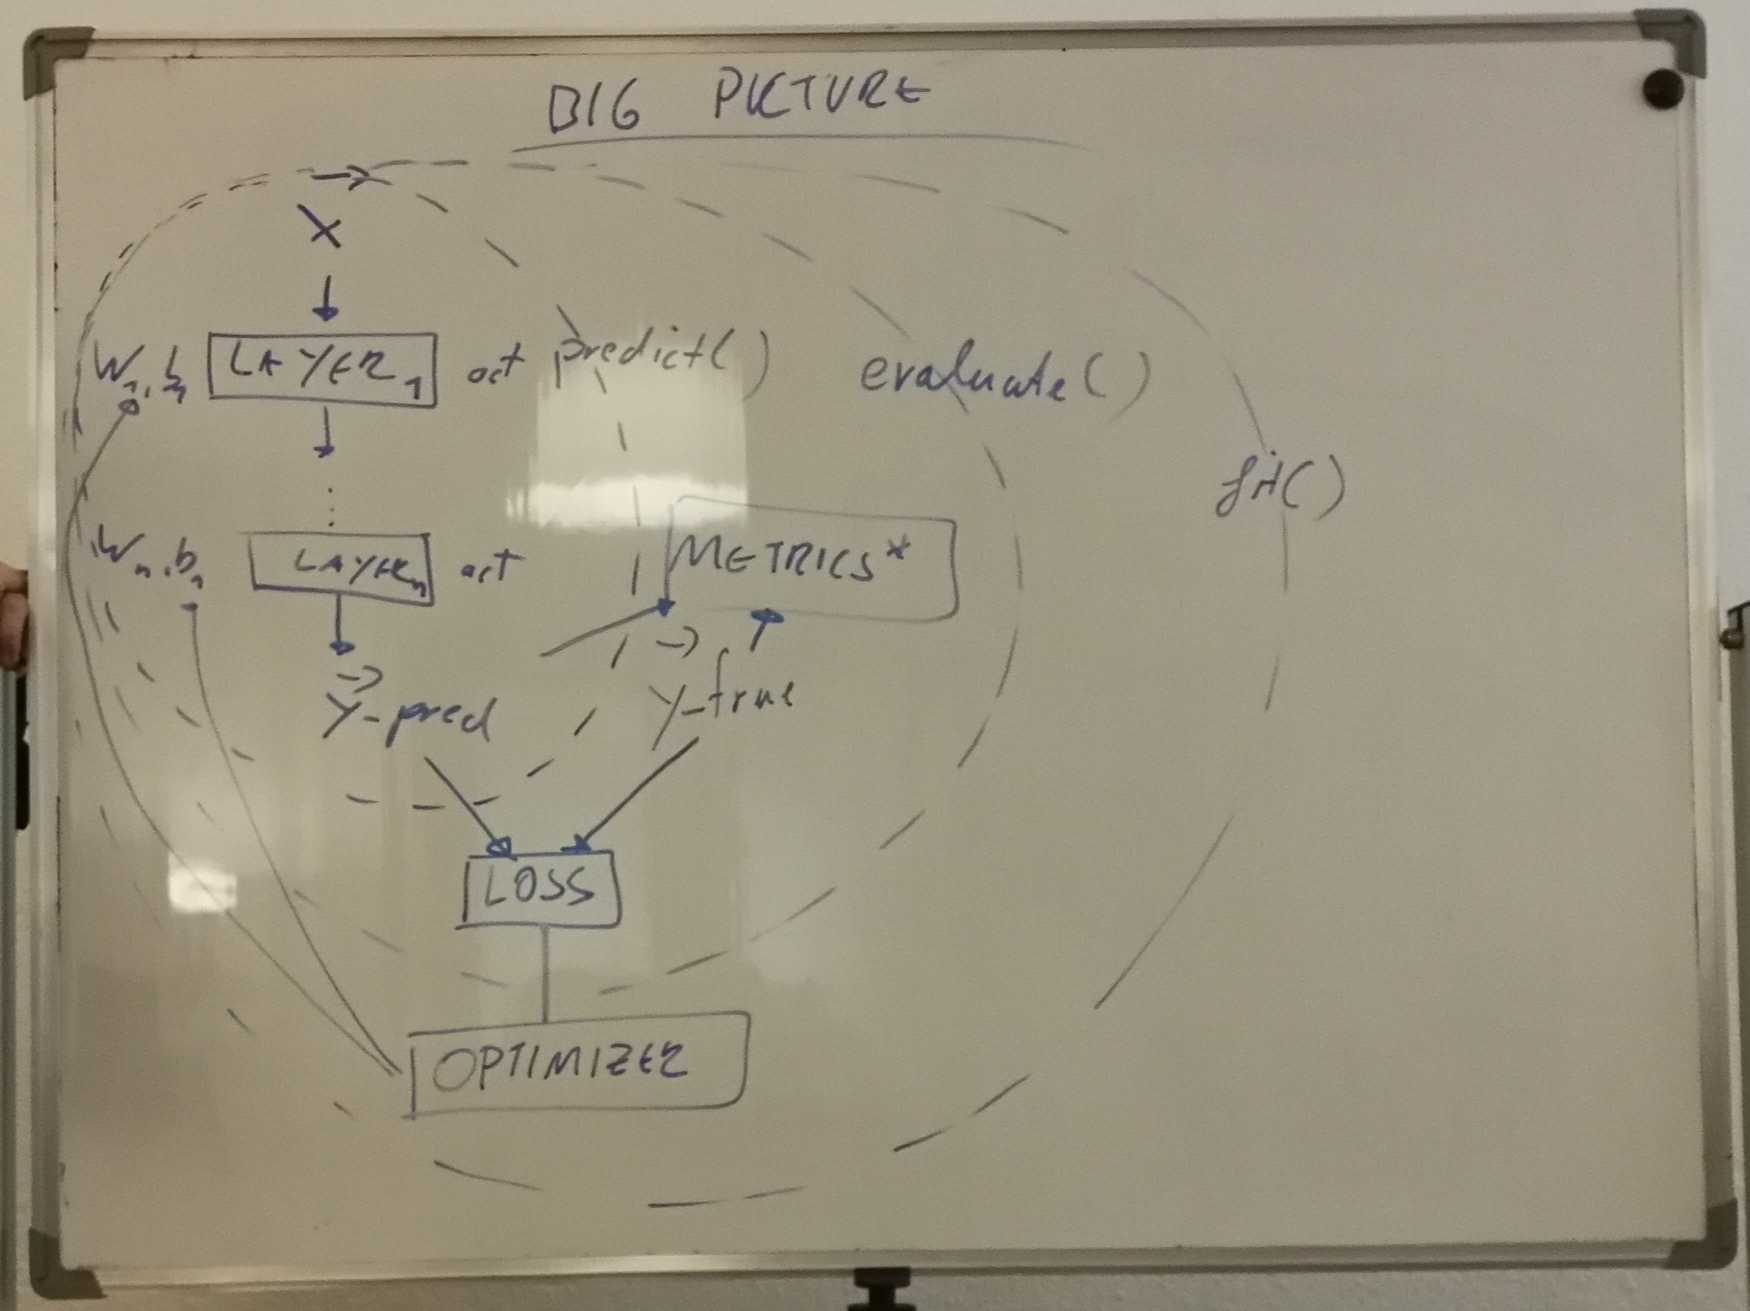 BIG PICTURE
→
X
W₁, b₁ LAYER₁ act predict() evaluate()
fit()
⋮
Wₙ, bₙ LAYERₙ act METRICS*
→ →
y_pred y_true
LOSS
OPTIMIZER